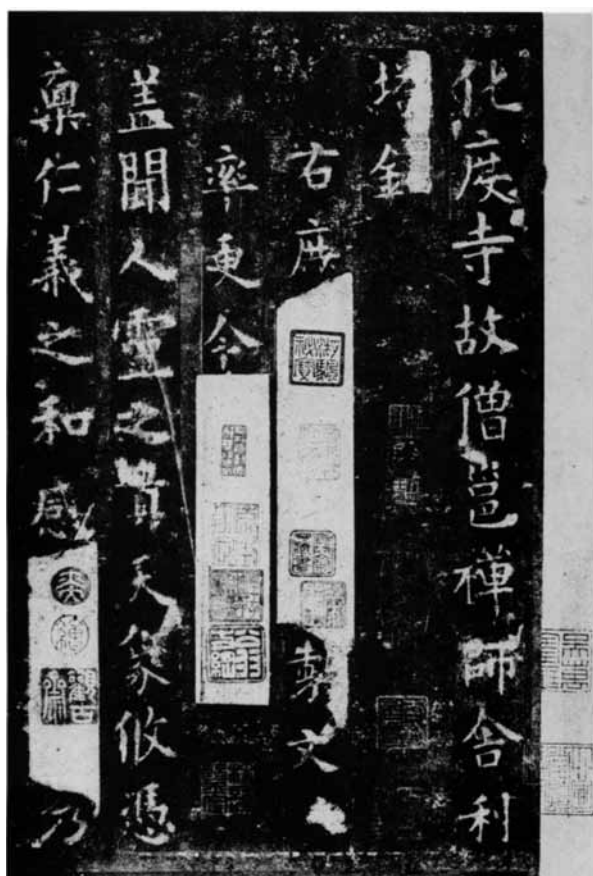 化度寺故僧邕禪師舍利
塔銘
右庶製文
率更令
盖聞人靈之貴天象攸憑
稟仁義之和感乃